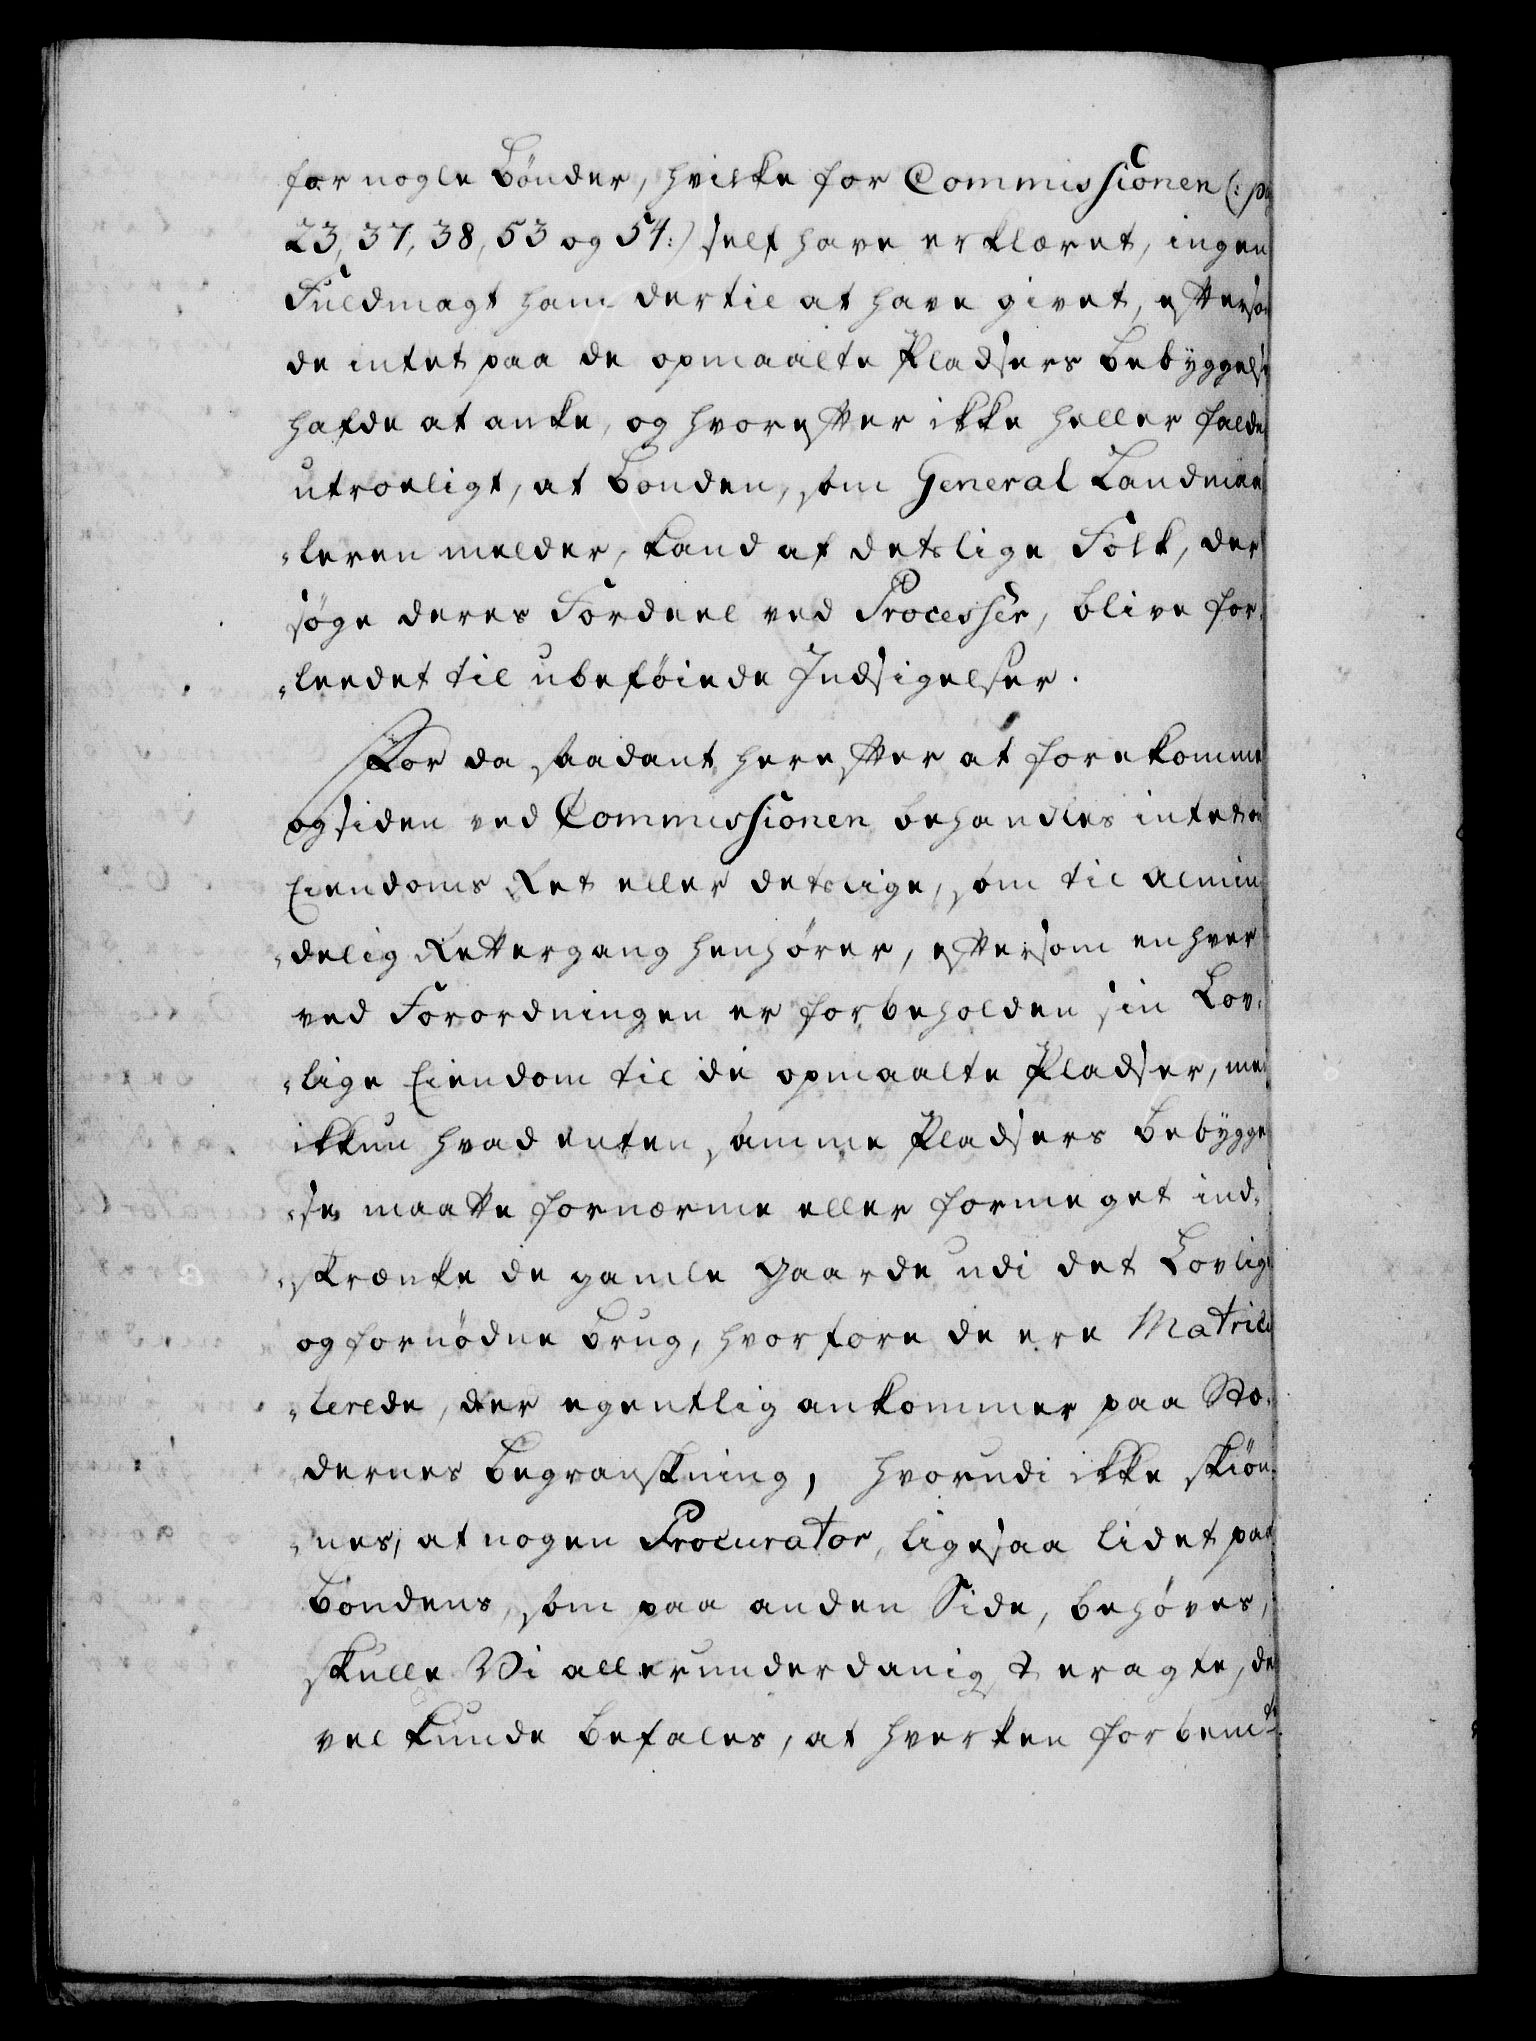 for nogle Bönder, hvilke for Commissionen (: pag
23, 37, 38, 53 og 54:) self have erklæret, ingen
Fuldmagt ham dertil at have givet, efterso
de intet paa de opmaalte Pladsers Bebyggelse
hafde at anke, og hvorefter ikke heller falder
utroeligt, at Bonden, som General Landmaa
„leren melder, kand af detslige Folk, der
söge deres Fordeel ved Processer, blive for„
„leedet til ubeföiede Indsigelser.
For da saadant herefter at forekomme
og siden ved Commissionen behandles intet om
Eiendoms Ret eller detslige, som til almin
„delig Rettergang henhörer, eftersom en hver
ved Forordningen er forbeholden sin Lov„
„lige Eiendom til de opmaalte Pladser, men
ikkun hvad enten samme Pladsers Bebygge
„se maatte fornærme eller formeget ind„
„skrænke de gamle Gaarde udi det Lovlige
og fornödne Brug, hvorfore de ere Matricu
„lerede, der egentlig ankommer paa Stæ„
dernes Begranskning, hvorudi ikke skiön„
„nes, at nogen Procurator, ligesaa lidet paa
Bondens, som paa anden Side, behöves,
skulle Vi allerunderdanigst eragte, de
vel kunde befales, at hverken forbemte